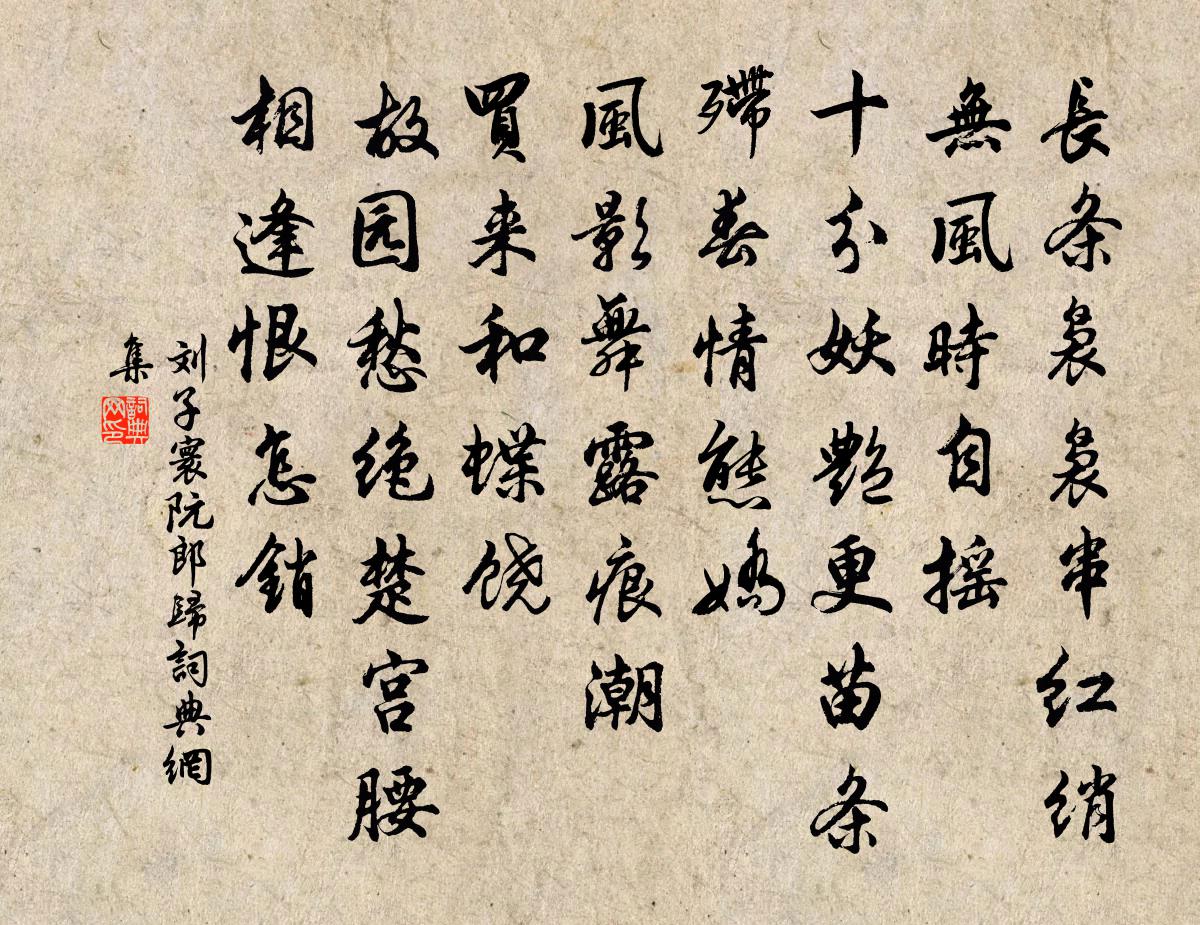 長条袅袅串红绡
無風時自摇
十分妖艷更苗条
殢春情態嬌
風影舞露痕潮
買来和蝶饶
故园愁绝楚宫腰
相逢恨怎銷
刘子寰阮郎歸詞典網
集
詞典
网印